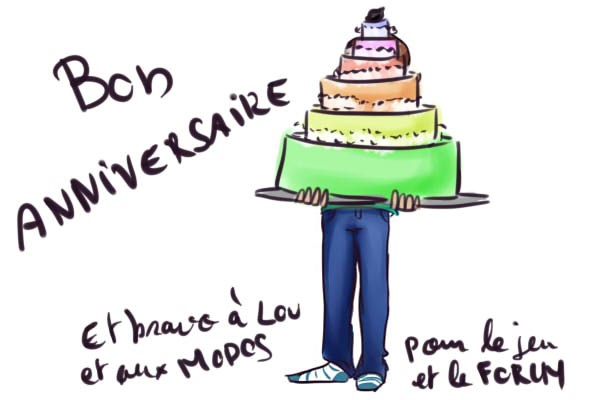 Bon
ANNIVERSAIRE
Et bravo à Lou
et aux MODOS
pour le jeu
et le FORUM